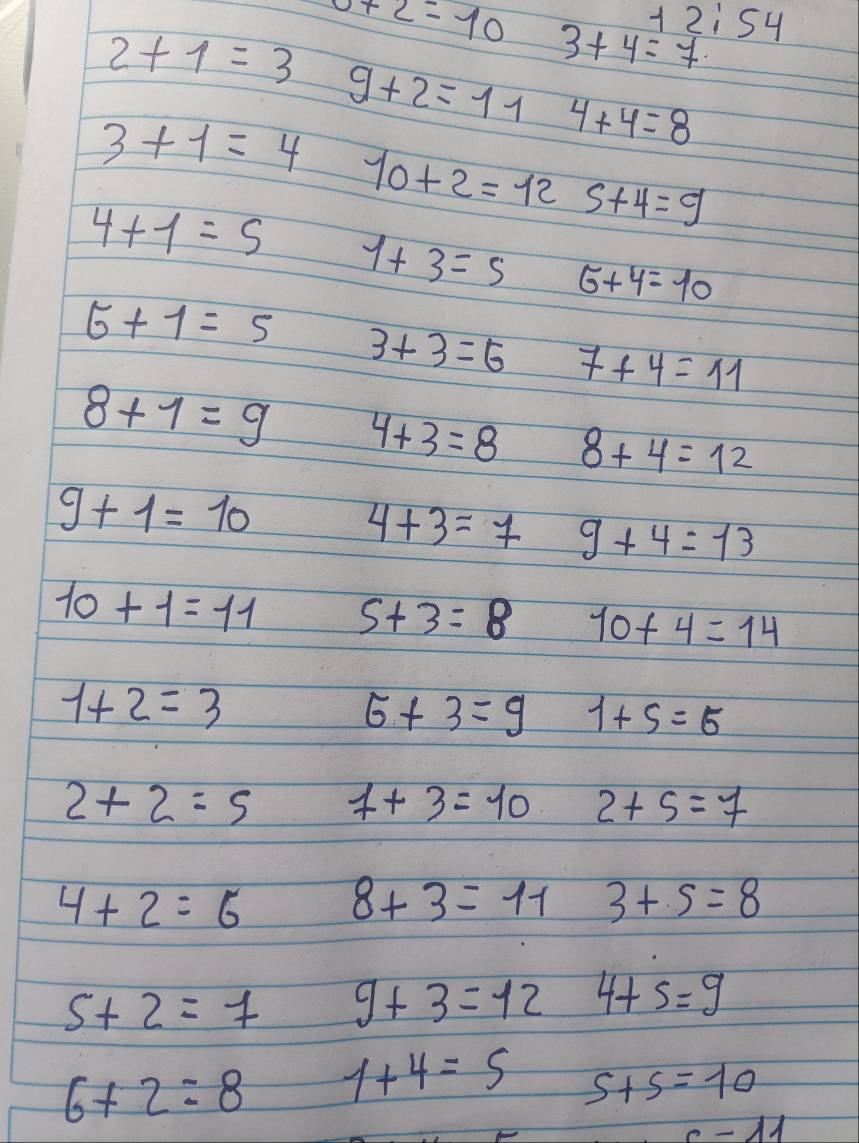 + 2 = 10
2 + 1 = 3
3 + 1 = 4
4 + 1 = 5
6 + 1 = 5
8 + 1 = 9
9 + 1 = 10
10 + 1 = 11
1 + 2 = 3
2 + 2 = 5
4 + 2 = 6
5 + 2 = 7
6 + 2 = 8
9 + 2 = 11
10 + 2 = 12
1 + 3 = 5
3 + 3 = 6
4 + 3 = 8
4 + 3 = 7
5 + 3 = 8
6 + 3 = 9
7 + 3 = 10
8 + 3 = 11
9 + 3 = 12
1 + 4 = 5
12:54
3 + 4 = 7
4 + 4 = 8
5 + 4 = 9
6 + 4 = 10
7 + 4 = 11
8 + 4 = 12
9 + 4 = 13
10 + 4 = 14
1 + 5 = 6
2 + 5 = 7
3 + 5 = 8
4 + 5 = 9
5 + 5 = 10
= 11